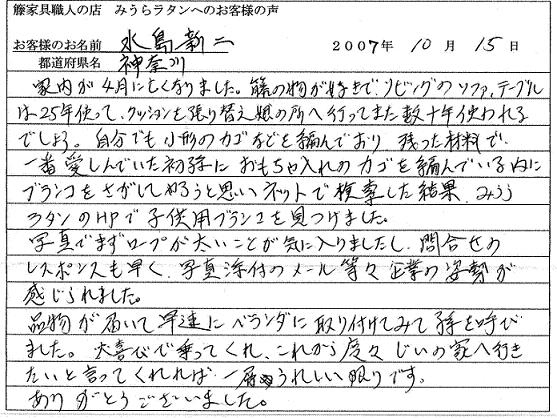 籐家具職人の店 みうらラタンへのお客様の声
お客様のお名前 水島新二 2007年10月15日
都道府県名 神奈川
家内が4月に亡くなりました。籐の物が好きで、リビングのソファ、テーブル
は25年使って、クッションを張り替え娘の所へ行ってまた数十年使われる
でしょう。自分でも小形のカゴなどを編んでおり 残った材料で、
一番愛しんでいた初孫に おもちゃ入れのカゴを編んでいる内に
ブランコをさがしてやろうと思いネットで検索した結果、みうら
ラタンのHPで子供用ブランコを見つけました。
写真でまずロープが太いことが気に入りましたし、問合せの
レスポンスも早く、写真添付のメール等々企業の姿勢が
感じられました。
品物が届いて早速にベランダに取り付けてみて孫を呼び
ました。大喜びで乗ってくれ、これから度々じいの家へ行き
たいと言ってくれれば一層うれしい限りです。
ありがとうございました。